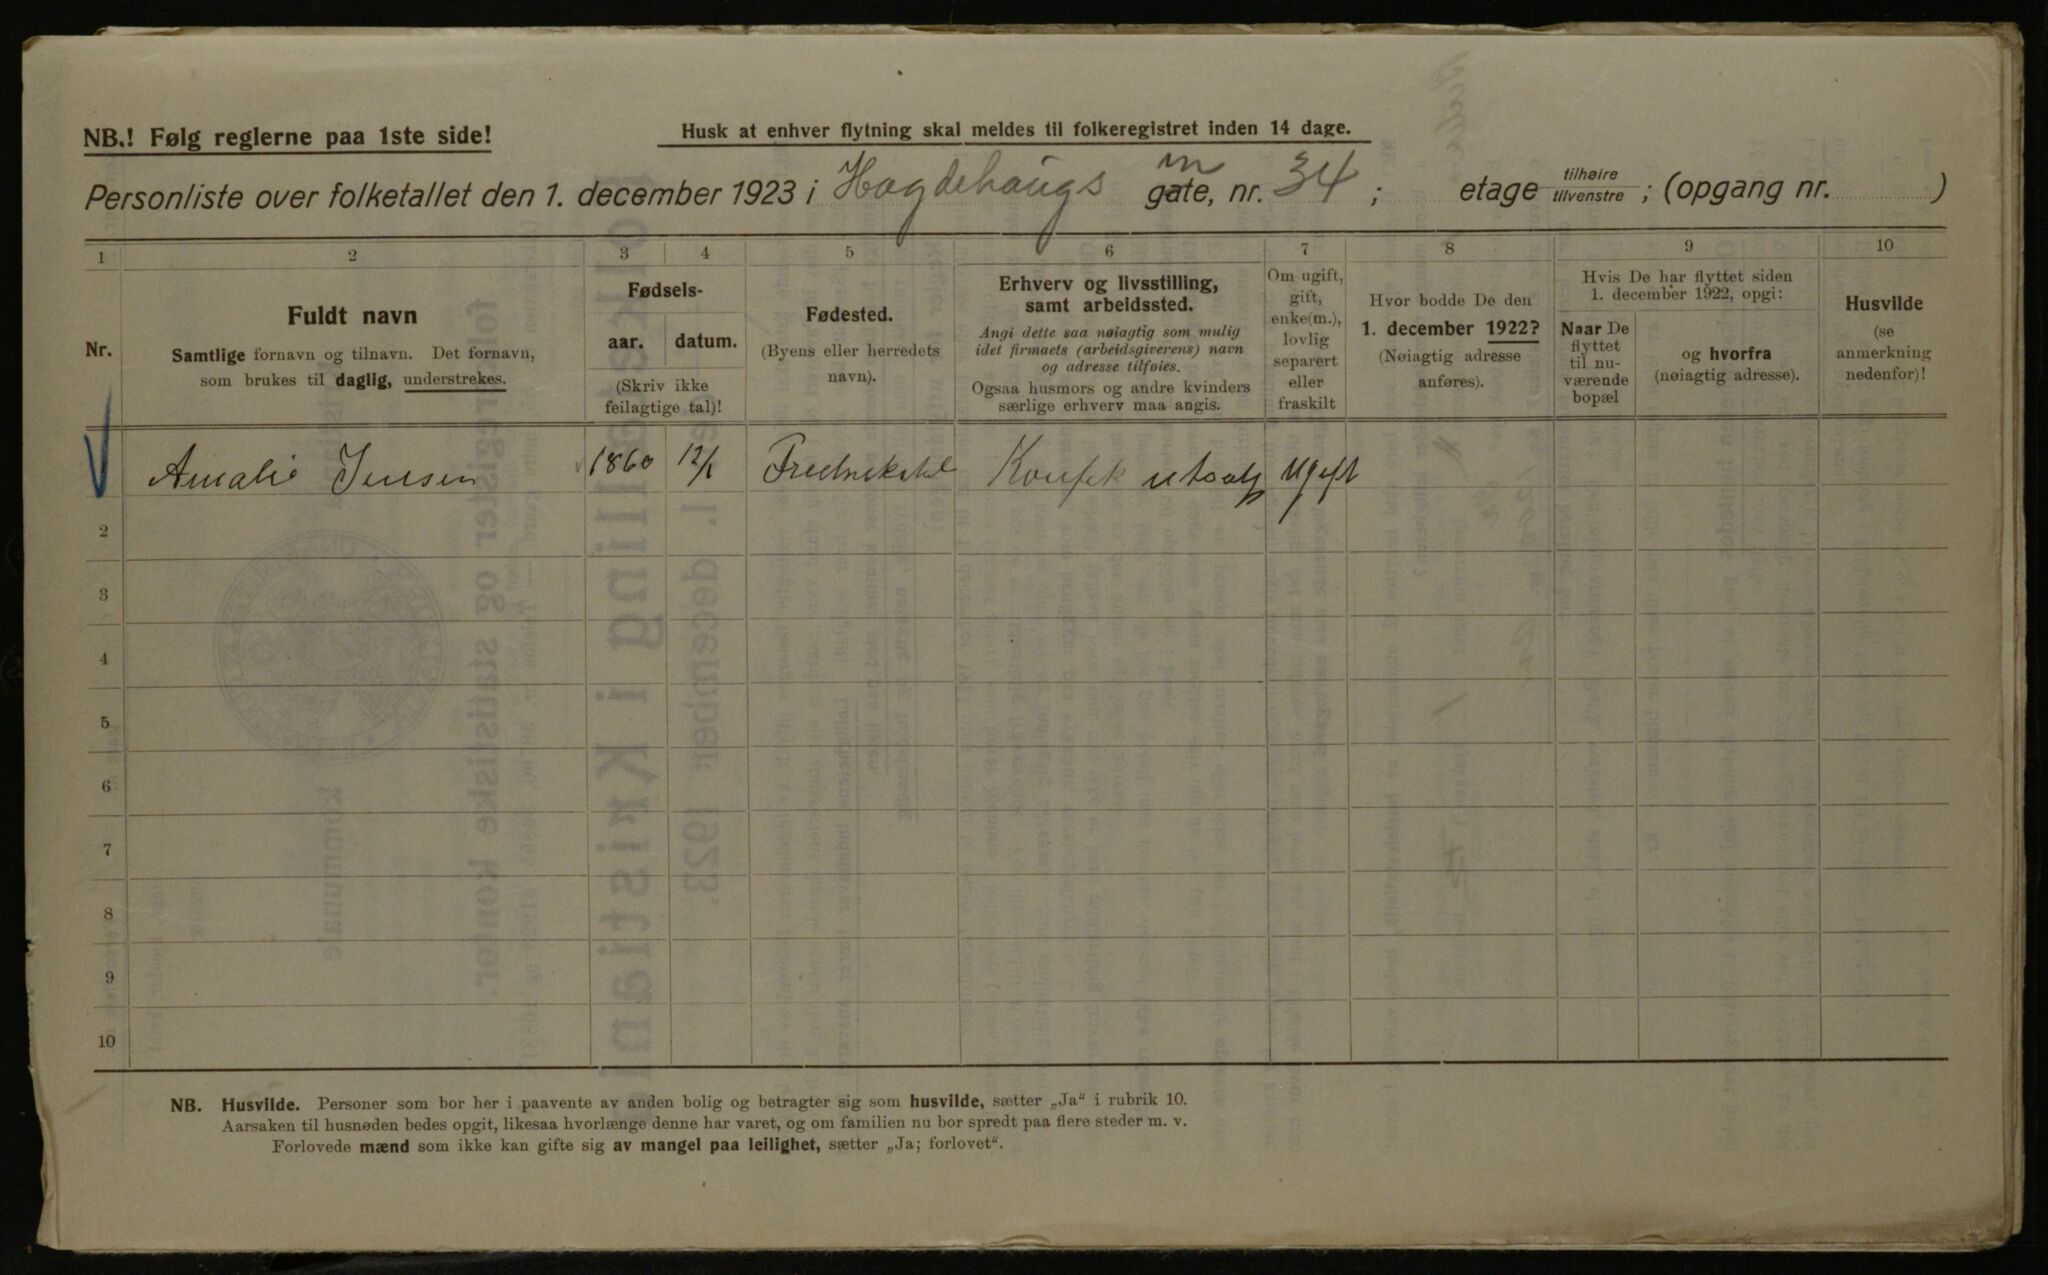 NB.! Følg reglerne paa 1ste side!
Husk at enhver flytning skal meldes til folkeregistret inden 14 dage.
Personliste over folketallet den 1. december 1923 i Hægdehaugs gate, nr. 34 ; etage tilhøire tilvenstre ; (opgang nr. )
1 2 3 4 5 6 7 8 9 10
Nr.
Fuldt navn
Samtlige fornavn og tilnavn. Det fornavn,
som brukes til daglig, understrekes.
Fødsels-
aar. datum.
(Skriv ikke
feilagtige tal)!
Fødested.
(Byens eller herredets
navn).
Erhverv og livsstilling,
samt arbeidssted.
Angi dette saa nøiagtig som mulig
idet firmaets (arbeidsgiverens) navn
og adresse tilføies.
Ogsaa husmors og andre kvinders
særlige erhverv maa angis.
Om ugift,
gift,
enke(m.),
lovlig
separert
eller
fraskilt
Hvor bodde De den
1. december 1922?
(Nøiagtig adresse
anføres).
Hvis De har flyttet siden
1. december 1922, opgi:
Naar De
flyttet
til nu-
værende
bopæl
og hvorfra
(nøiagtig adresse).
Husvilde
(se
anmerkning
nedenfor)!
Amalie Jensen 1860 12/1 Fredrikshal Konfek utsalg Ugift
2
3
4
5
6
7
8
9
10
NB. Husvilde. Personer som bor her i paavente av anden bolig og betragter sig som husvilde, sætter „Ja“ i rubrik 10.
Aarsaken til husnøden bedes opgit, likesaa hvorlænge denne har varet, og om familien nu bor spredt paa flere steder m. v.
Forlovede mænd som ikke kan gifte sig av mangel paa leilighet, sætter „Ja; forlovet“.